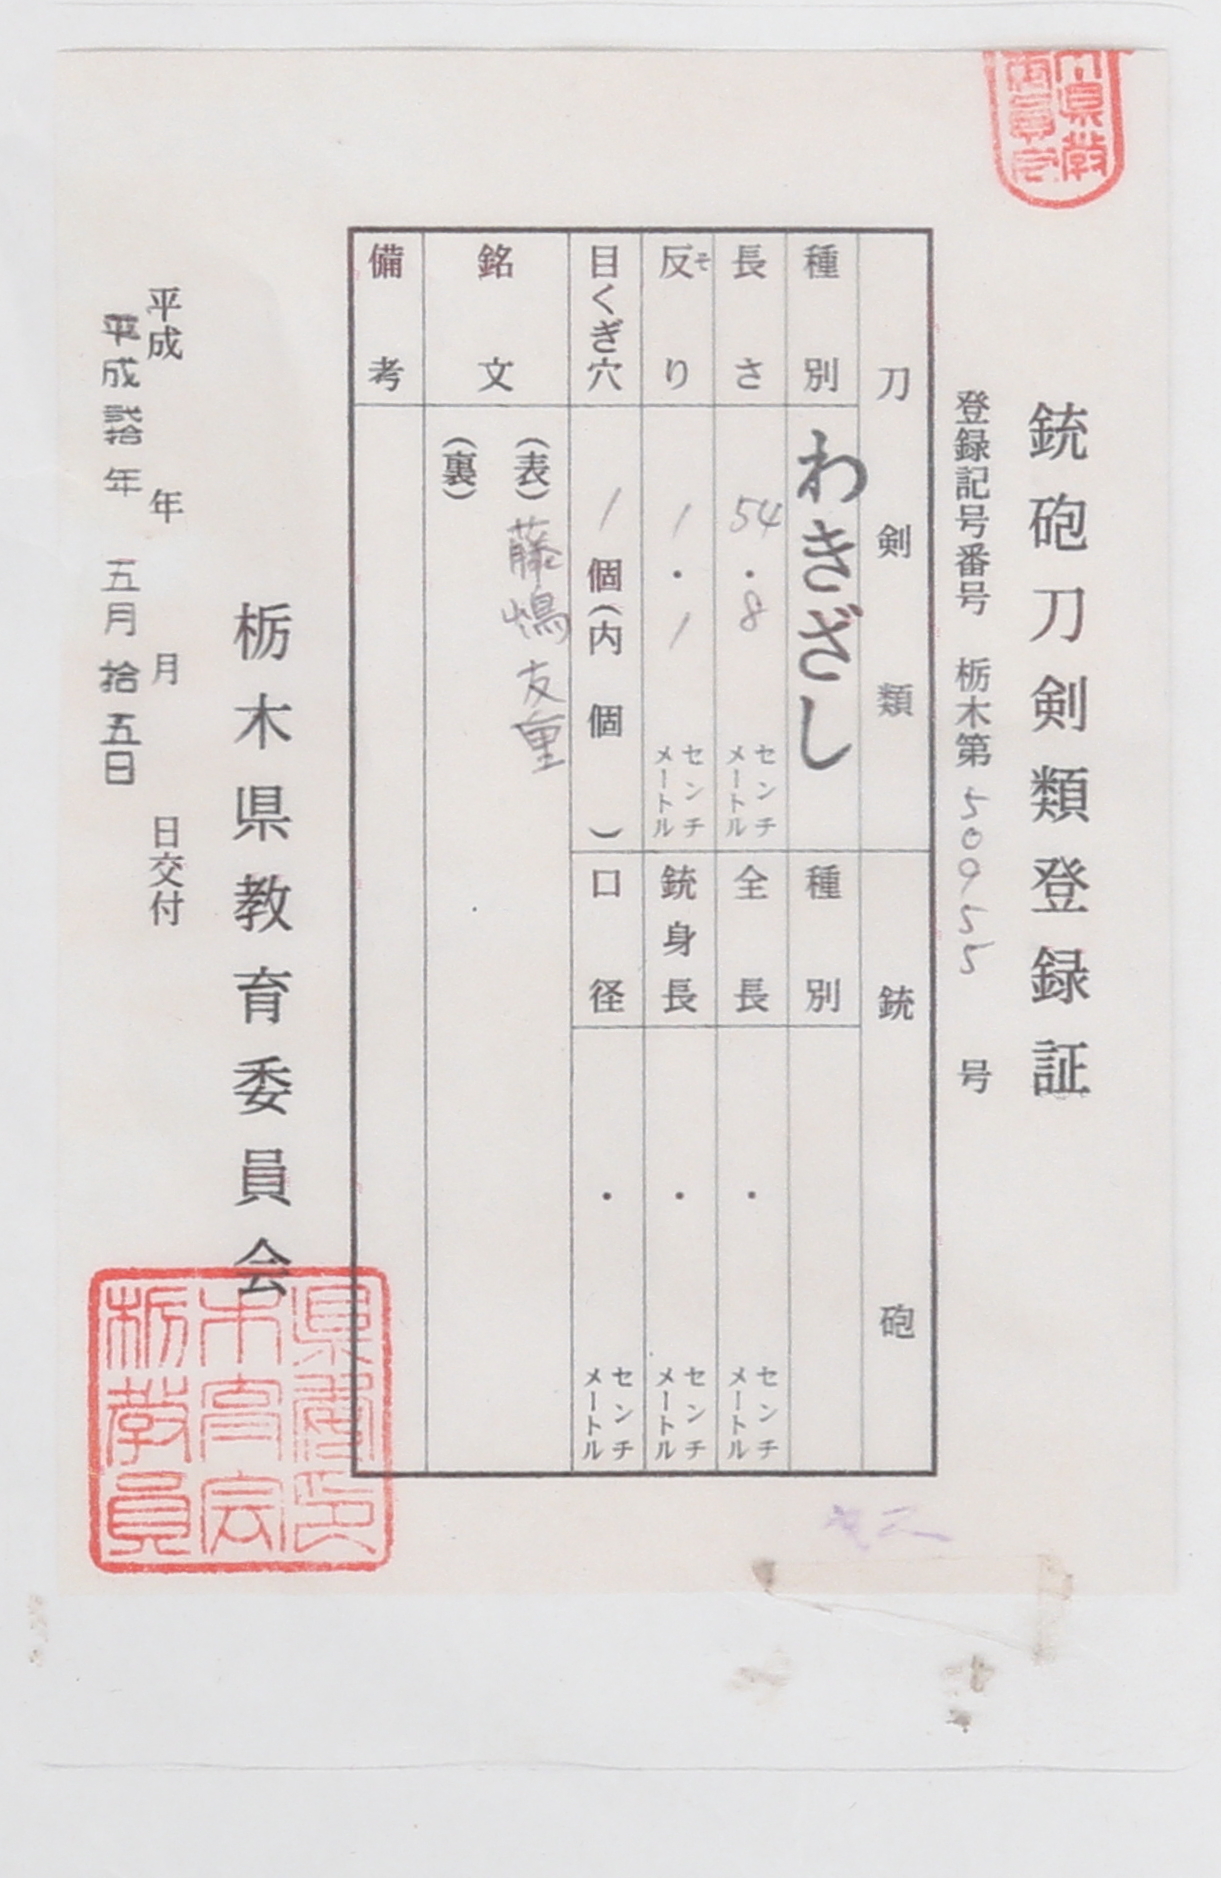 銃砲刀剣類登録証
登録記号番号 栃木第 50955 号
刀剣類
種別 わきざし
長さ 54.8 センチメートル
反り そ 1.1 センチメートル
目くぎ穴 1個(内 個)
銘文 (表) 藤嶋友重
(裏)
備考
銃砲
種別
全長 ・ センチメートル
銃身長 ・ センチメートル
口径 ・ センチメートル
栃木県教育委員会
平成 年 月 日交付
平成弐拾年 五月拾五日
栃木県教育委員会印